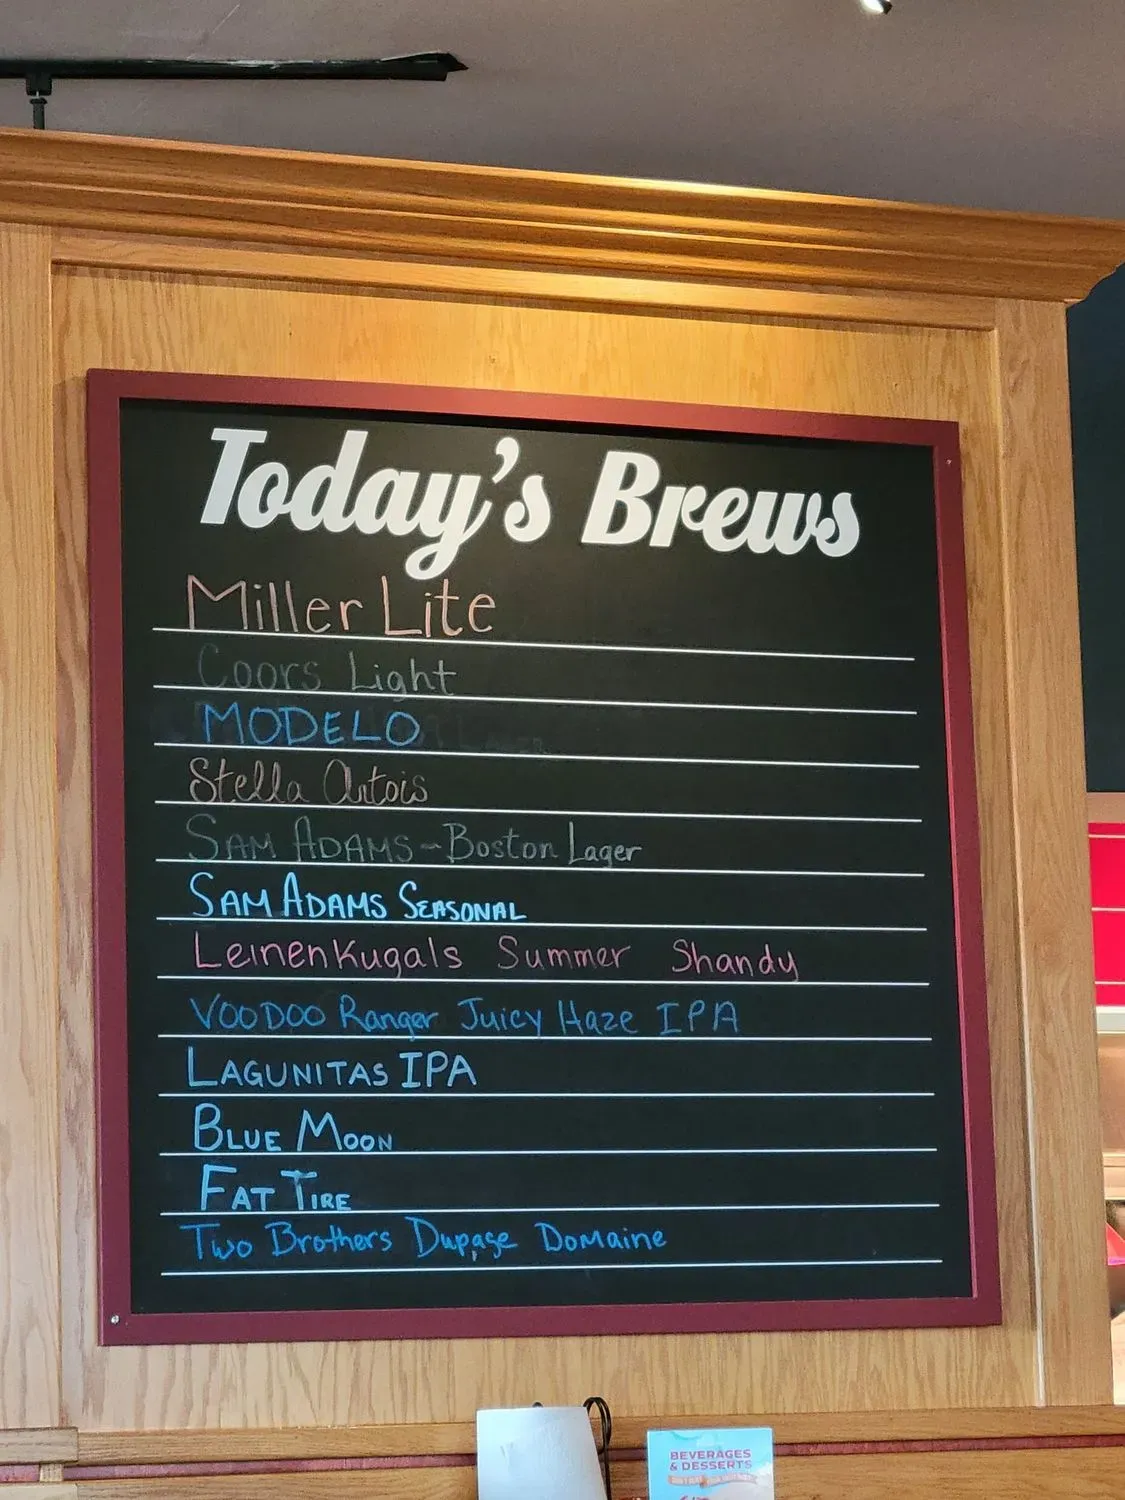 Today's Brews
Miller Lite
Coors Light
MODELO
Stella Artois
SAM ADAMS - Boston Lager
SAM ADAMS SEASONAL
LeinenKugals Summer Shandy
VOODOO Ranger Juicy Haze IPA
LAGUNITAS IPA
BLUE MOON
FAT TIRE
Two Brothers Dupage Domaine
BEVERAGES
& DESSERTS